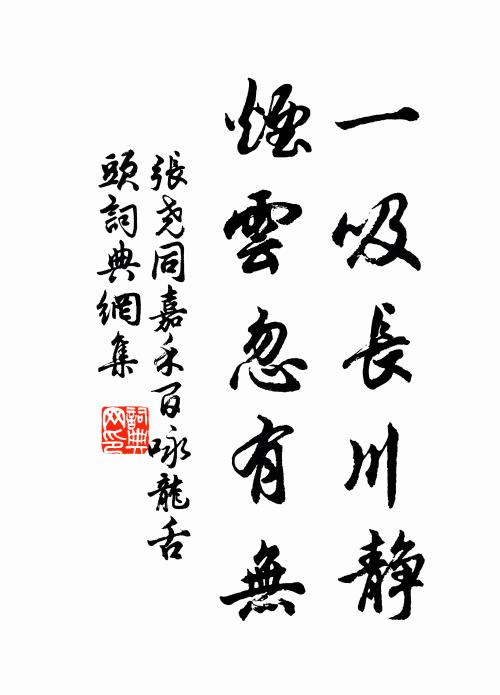 一吸長川静
煙雲忽有無
張尭同嘉禾百咏龍舌
頭詞典網集
詞典网印